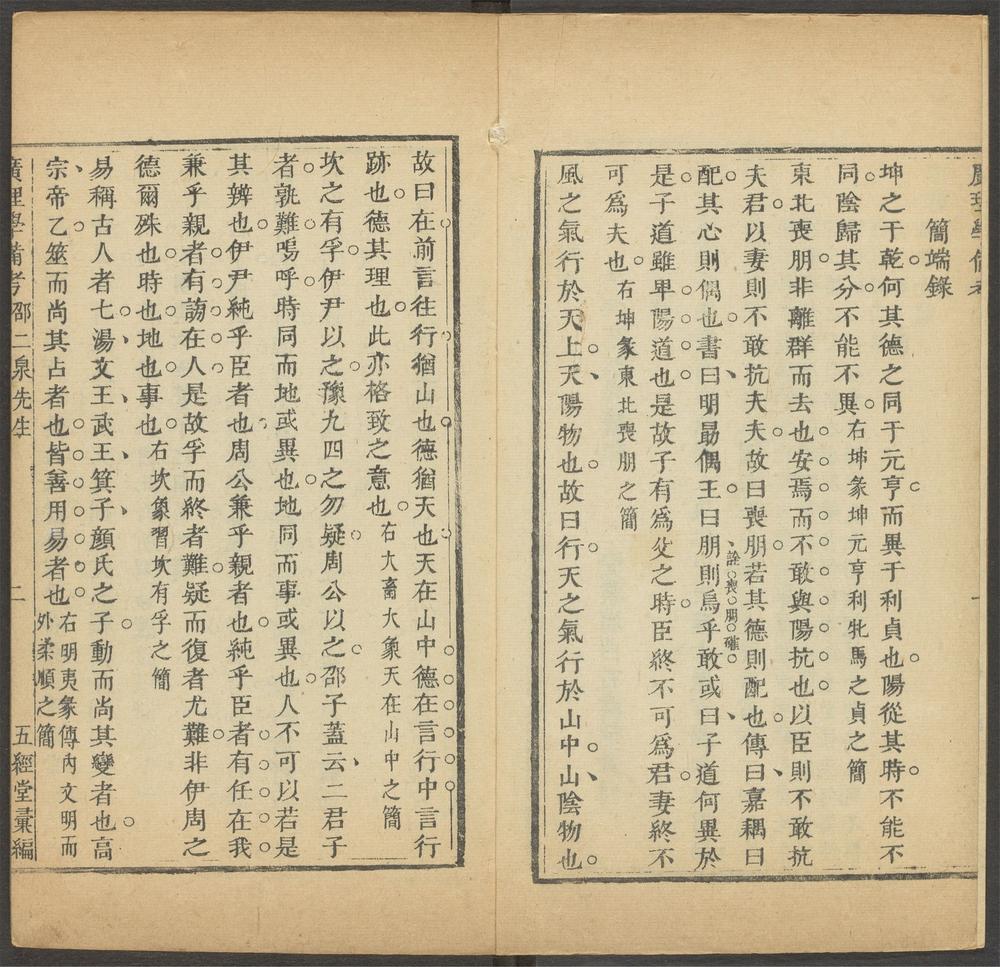 廣理學備考
簡端錄
坤之于乾何其德之同于元亨而異于利貞也陽從其時不能不
同陰歸其分不能不異右坤彖坤元亨利牝馬之貞之簡
東北喪朋非離群而去也安焉而不敢與陽抗也以臣則不敢抗
夫君以妻則不敢抗夫夫故曰喪朋若其德則配也傳曰嘉耦曰
配其心則偶也書曰明勗偶王曰朋則烏乎敢或曰子道何異於
詮喪朋確
是子道雖卑陽道也是故子有爲父之時臣終不可爲君妻終不
可爲夫也右坤彖東北喪朋之簡
風之氣行於天上天陽物也故曰行天之氣行於山中山陰物也
故曰在前言往行猶山也德猶天也天在山中德在言行中言行
跡也德其理也此亦格致之意也右大畜大象天在山中之簡
坎之有孚伊尹以之豫九四之勿疑周公以之邵子蓋云二君子
者孰難嗚呼時同而地或異也地同而事或異也人不可以若是
其辨也伊尹純乎臣者也周公兼乎親者也純乎臣者有任在我
兼乎親者有謗在人是故孚而終者難疑而復者尤難非伊周之
德爾殊也時也地也事也右坎彖習坎有孚之簡
易稱古人者七湯文王武王箕子顏氏之子動而尚其變者也高
宗帝乙筮而尚其占者也皆善用易者也右明夷彖傳內文明而
外柔順之簡
廣理學備考 邵二泉先生 二 五經堂彙編